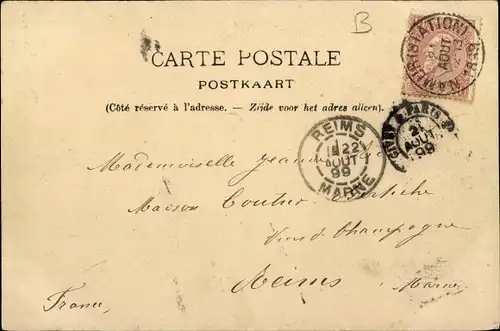 B
CARTE POSTALE
POSTKAART
(Côté réservé à l'adresse. — Zijde voor het adres alleen).
NAMUR (STATION)
21
AOUT
REIMS
22
AOUT
99
MARNE
GIVET A PARIS
21
AOUT
99
Mademoiselle Jeanne
Maison
Vins de Champagne
Reims
Marne
France